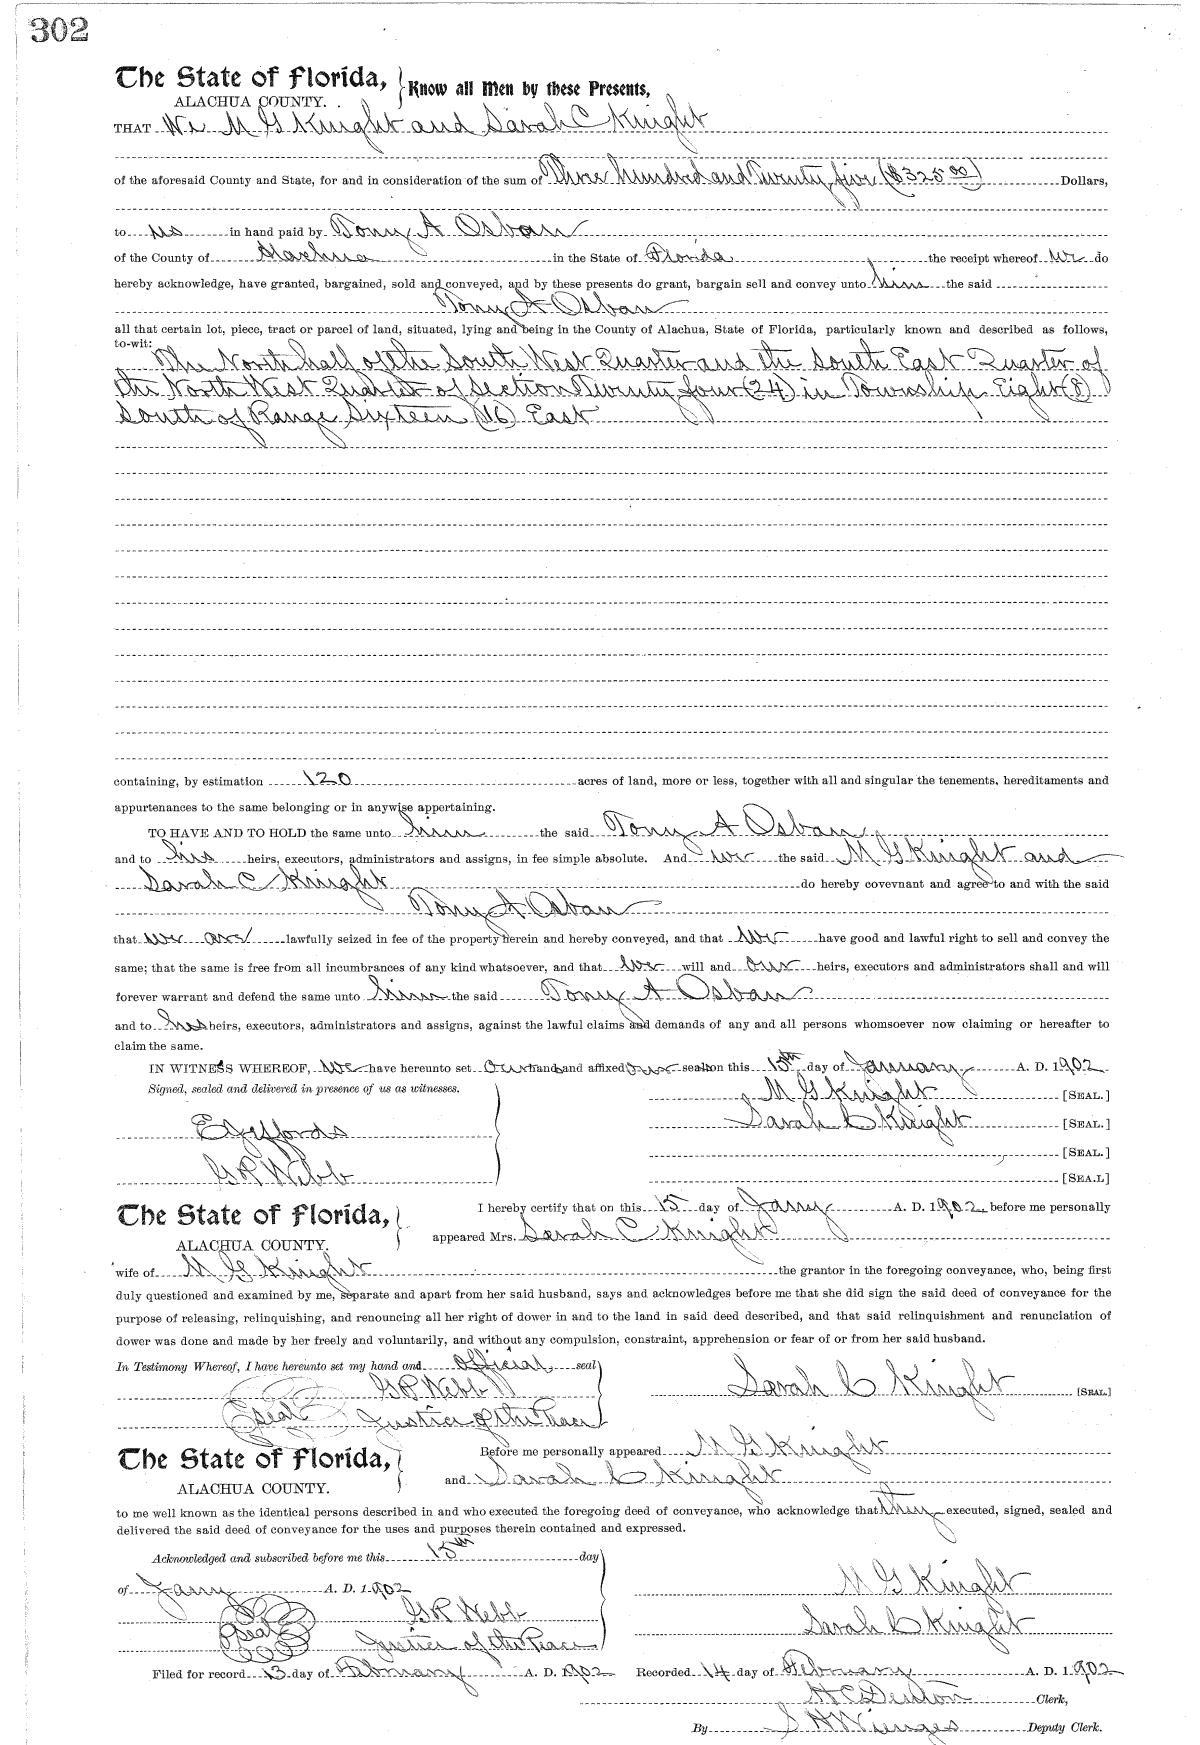 302
The State of Florida, Know all Men by these Presents,
ALACHUA COUNTY.
THAT We M G Knight and Sarah C Knight
of the aforesaid County and State, for and in consideration of the sum of Three hundred and Twenty five ($325 00) Dollars,
to us in hand paid by Tony A Osban
of the County of Alachua in the State of Florida the receipt whereof we do
hereby acknowledge, have granted, bargained, sold and conveyed, and by these presents do grant, bargain sell and convey unto him the said
Tony A Osban
all that certain lot, piece, tract or parcel of land, situated, lying and being in the County of Alachua, State of Florida, particularly known and described as follows,
to-wit:
The North half of the South West Quarter and the South East Quarter of
the North West Quarter of Section Twenty four (24) in Township Eight (8)
South of Range Sixteen (16) East
containing, by estimation 120 acres of land, more or less, together with all and singular the tenements, hereditaments and
appurtenances to the same belonging or in anywise appertaining.
TO HAVE AND TO HOLD the same unto him the said Tony A Osban
and to his heirs, executors, administrators and assigns, in fee simple absolute. And we the said M G Knight and
Sarah C Knight do hereby covevnant and agree to and with the said
Tony A Osban
that we are lawfully seized in fee of the property herein and hereby conveyed, and that we have good and lawful right to sell and convey the
same; that the same is free from all incumbrances of any kind whatsoever, and that we will and our heirs, executors and administrators shall and will
forever warrant and defend the same unto him the said Tony A Osban
and to his heirs, executors, administrators and assigns, against the lawful claims and demands of any and all persons whomsoever now claiming or hereafter to
claim the same.
IN WITNESS WHEREOF, we have hereunto set our hand and affixed our seals on this 15th day of January A. D. 1902
Signed, sealed and delivered in presence of us as witnesses.
M G Knight [SEAL.]
Sarah C Knight [SEAL.]
[SEAL.]
G P Webb [SEA.L]
The State of Florida, I hereby certify that on this 15 day of Jany A. D. 1902, before me personally
ALACHUA COUNTY. appeared Mrs. Sarah C Knight
wife of M G Knight the grantor in the foregoing conveyance, who, being first
duly questioned and examined by me, separate and apart from her said husband, says and acknowledges before me that she did sign the said deed of conveyance for the
purpose of releasing, relinquishing, and renouncing all her right of dower in and to the land in said deed described, and that said relinquishment and renunciation of
dower was done and made by her freely and voluntarily, and without any compulsion, constraint, apprehension or fear of or from her said husband.
In Testimony Whereof, I have hereunto set my hand and official seal
G P Webb Sarah C Knight [SEAL.]
seal Justice of the Peace
The State of Florida, Before me personally appeared M G Knight
ALACHUA COUNTY. and Sarah C Knight
to me well known as the identical persons described in and who executed the foregoing deed of conveyance, who acknowledge that they executed, signed, sealed and
delivered the said deed of conveyance for the uses and purposes therein contained and expressed.
Acknowledged and subscribed before me this 15th day
of Jany A. D. 1902 M G Knight
G P Webb Sarah C Knight
seal Justice of the Peace
Filed for record 13 day of February A. D. 1902 Recorded 14 day of February A. D. 1902
H C Denton Clerk,
By S H Wienges Deputy Clerk.